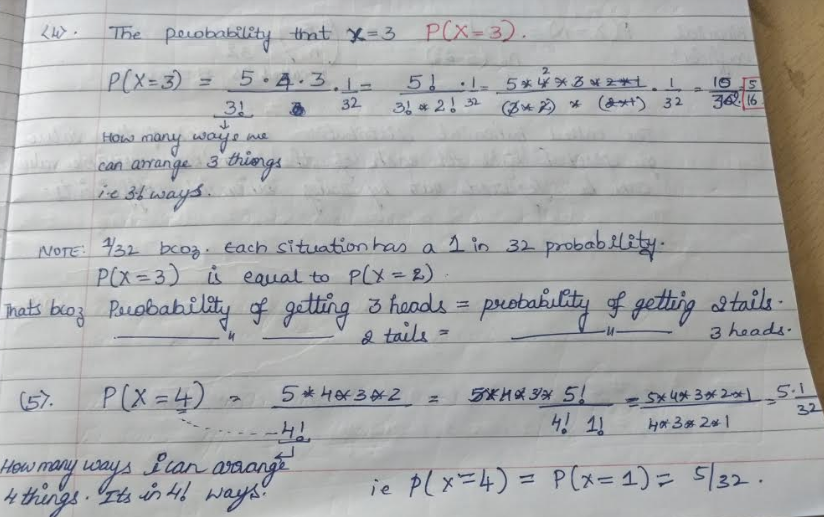 (4). The probability that x=3 P(X=3).
P(X=3) = 5·4·3 / 3! · 1/32 = 5! / 3! * 2! · 1/32 = 5*4*3*2*1 / (3*2) * (2*1) · 1/32 = 10/32 = 5/16
How many ways we
can arrange 3 things
i.e 3! ways.
NOTE: 1/32 bcoz. each situation has a 1 in 32 probability.
P(X=3) is equal to P(X=2)
Thats bcoz Probability of getting 3 heads = probability of getting 2 tails.
—〃— — 2 tails = —〃— 3 heads.
(5). P(X=4) = 5*4*3*2 / 4! = 5*4*3* 5! / 4! 1! = 5*4*3*2*1 / 4*3*2*1 = 5·1/32
How many ways I can arrange
4 things. Its in 4! ways.
ie P(X=4) = P(X=1) = 5/32.